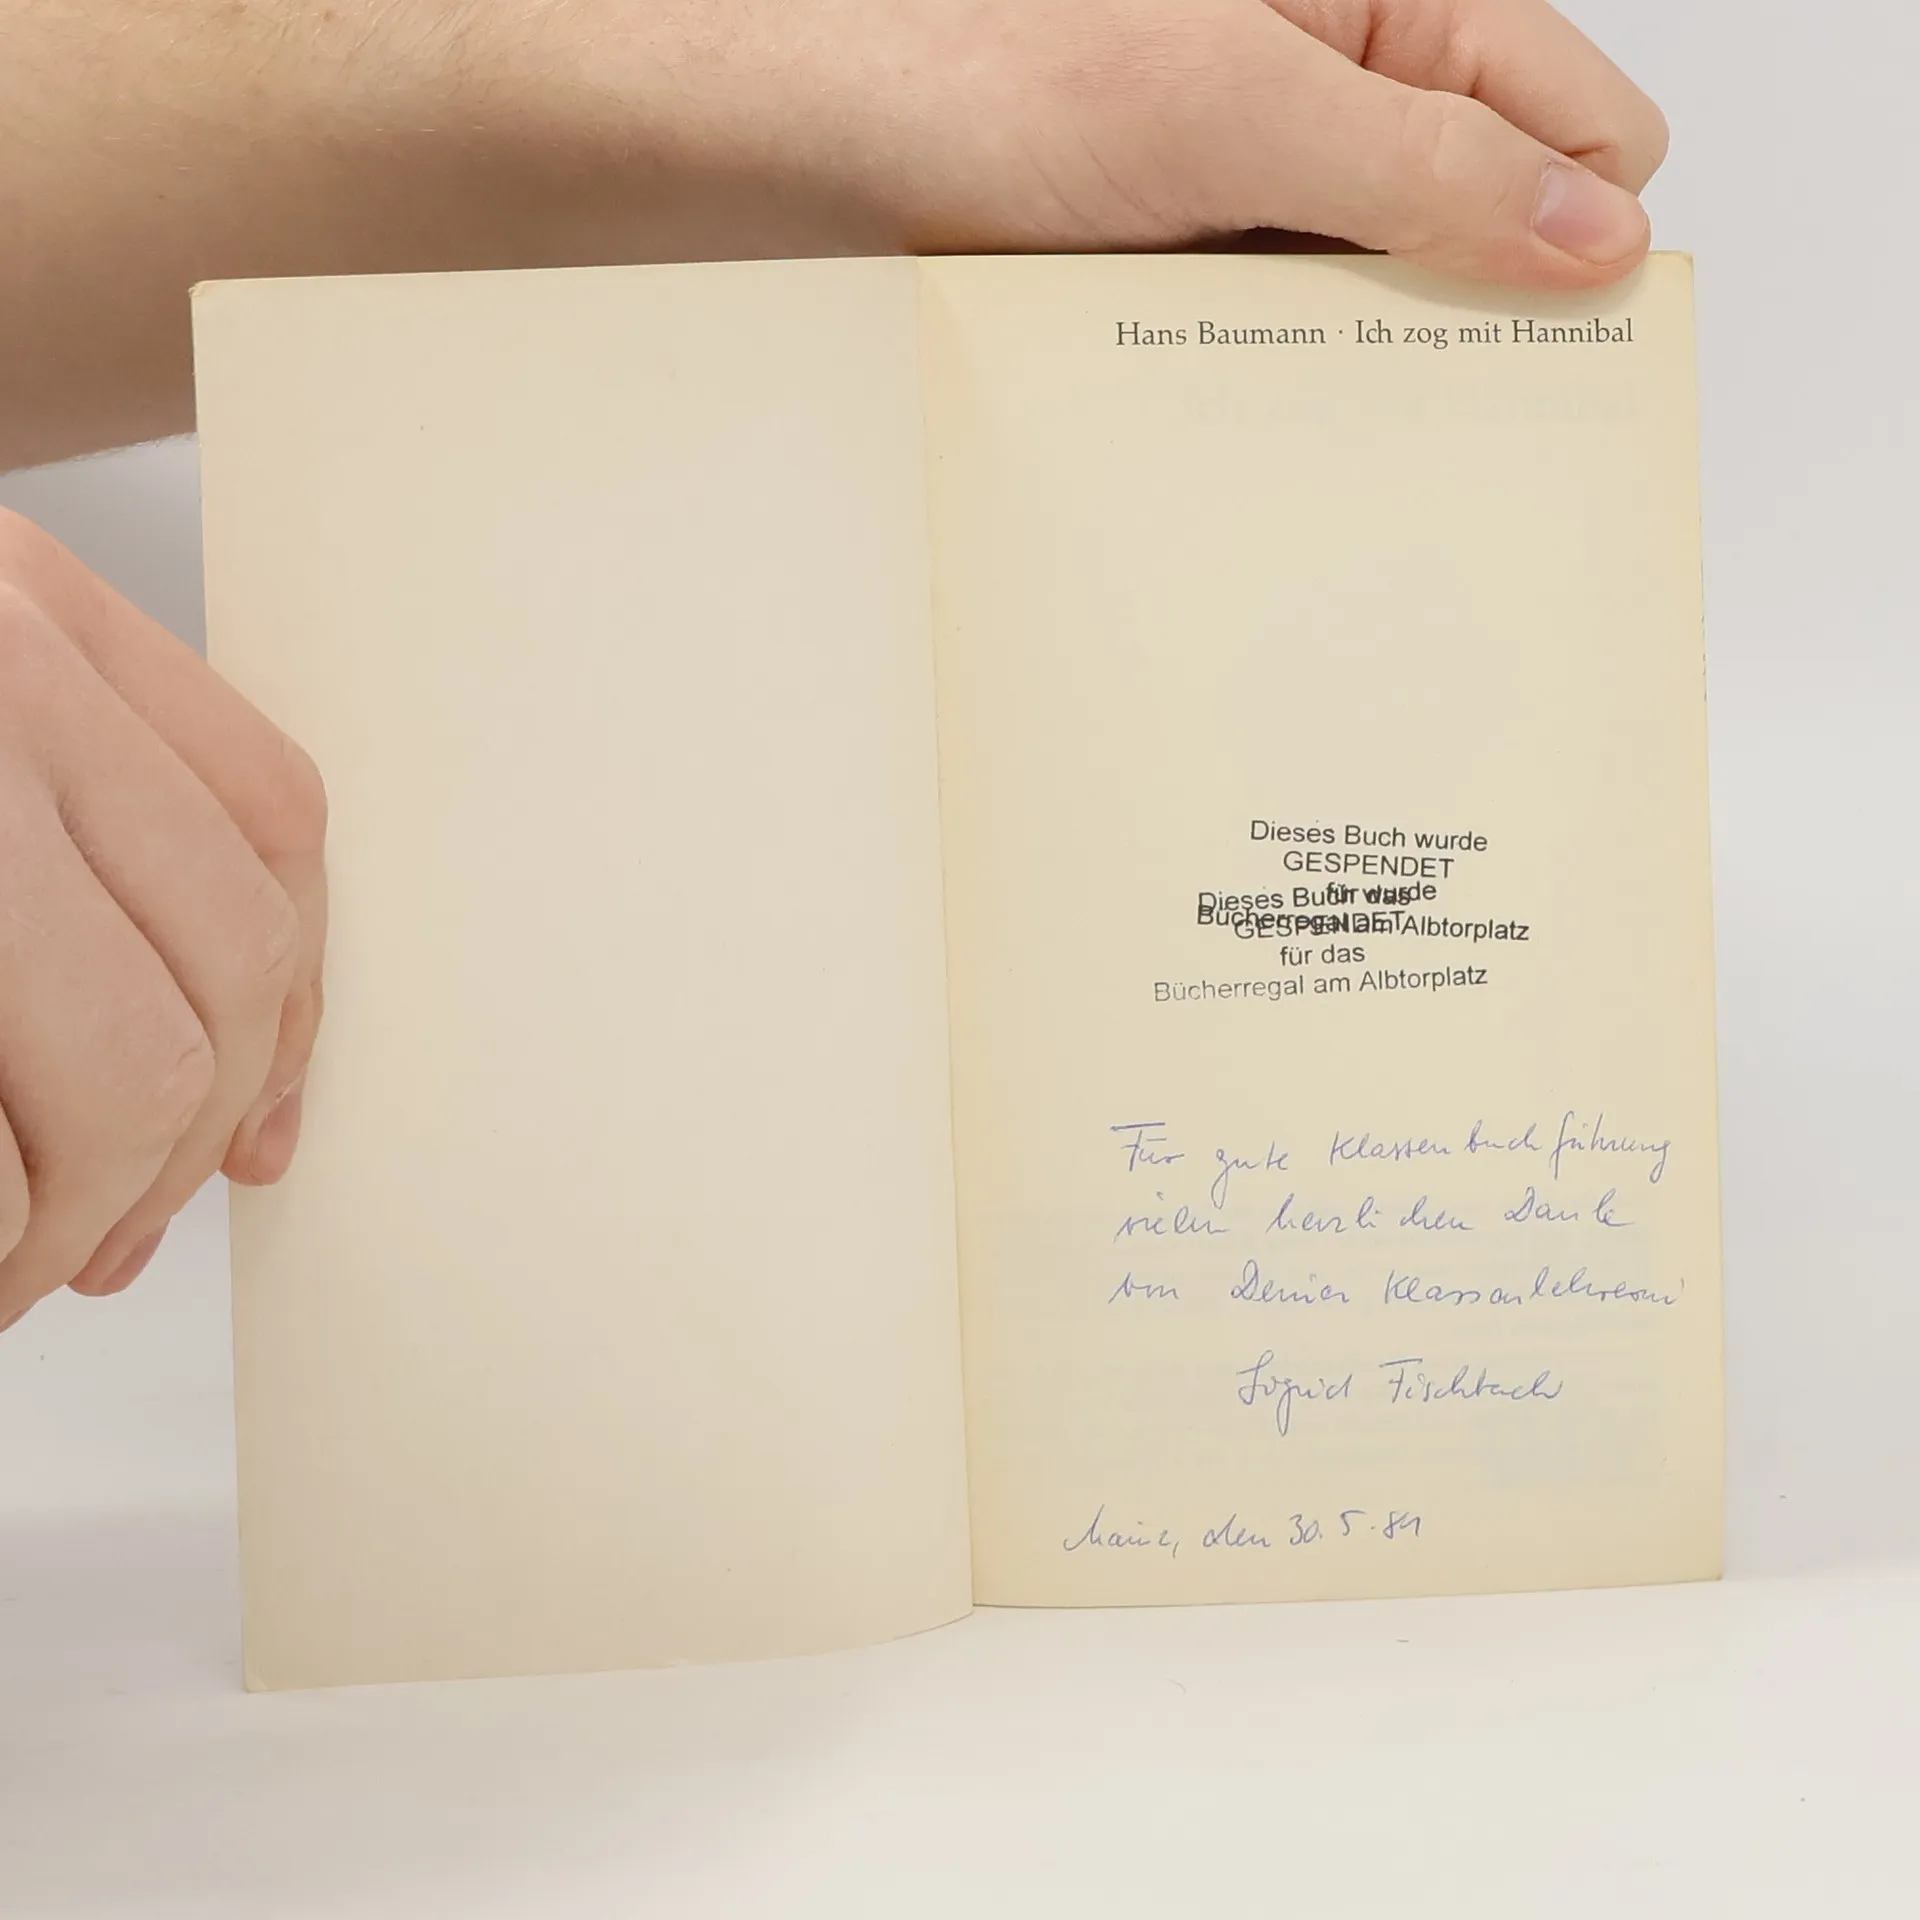 Hans Baumann · Ich zog mit Hannibal
Dieses Buch wurde
GESPENDET
für das
Bücherregal am Albtorplatz
Dieses Buch wurde
GESPENDET
für das
Bücherregal am Albtorplatz
Für gute Klassenbuchführung
vielen herzlichen Dank
von Deiner Klassenlehrerin
Sigrid Fischbach
Mainz, den 30.5.81